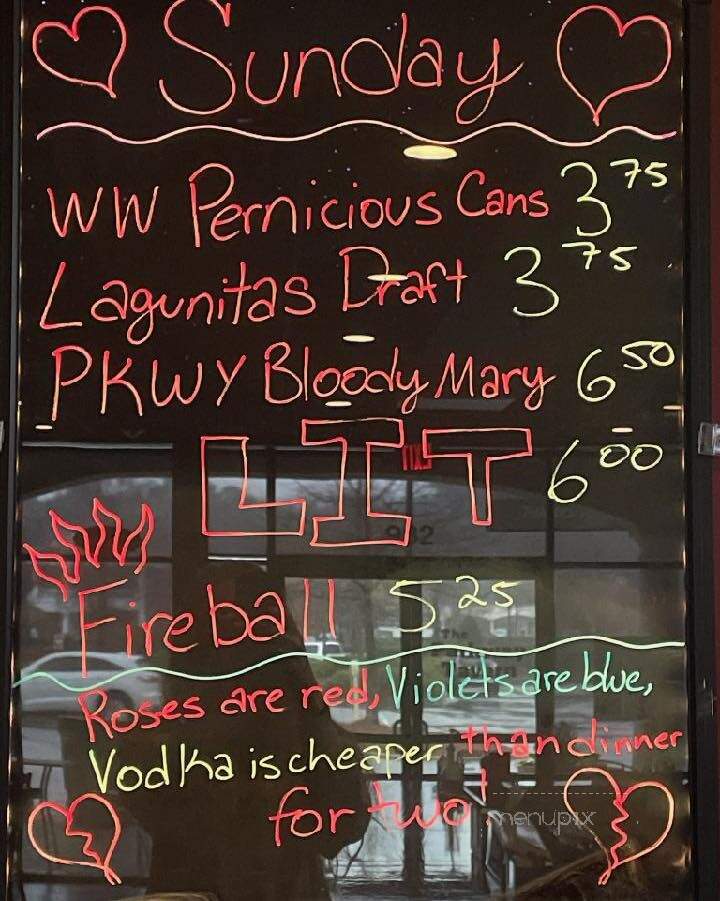 Sunday
WW Pernicious Cans 3 75
Lagunitas Draft 3 75
PKWY Bloody Mary 6 50
LIT 6 00
Fireball 5 25
Roses are red, Violets are blue,
Vodka is cheaper than dinner
for two!
menupix